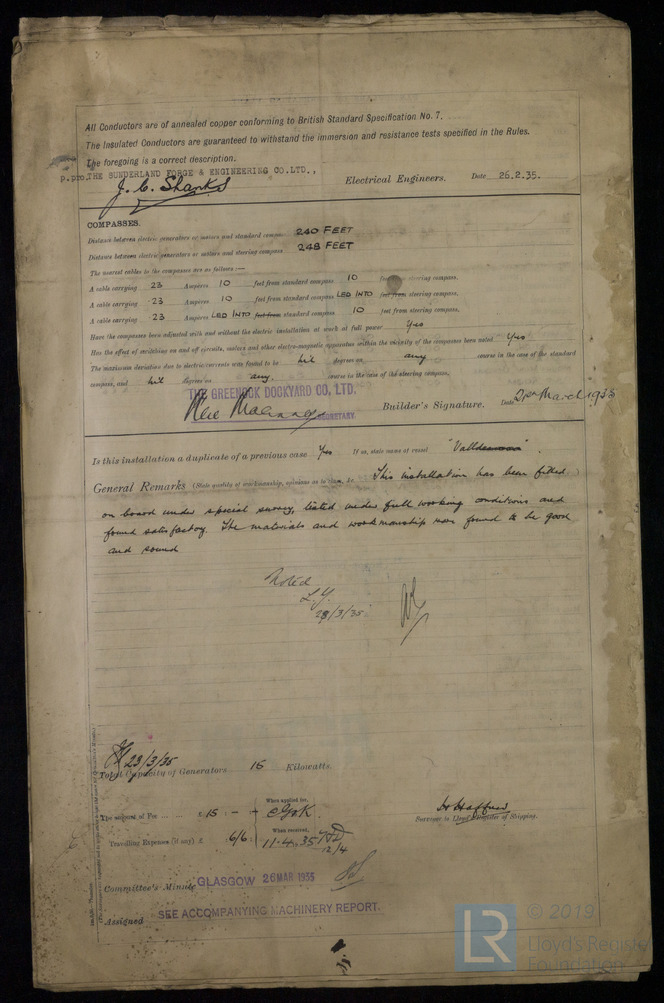 All Conductors are of annealed copper conforming to British Standard Specification No. 7.
The Insulated Conductors are guaranteed to withstand the immersion and resistance tests specified in the Rules.
The foregoing is a correct description.
p.pro THE SUNDERLAND FORGE & ENGINEERING CO.LTD.,
J. C. Shanks Electrical Engineers. Date 26.2.35.
COMPASSES.
Distance between electric generators or motors and standard compass 240 FEET
Distance between electric generators or motors and steering compass 248 FEET
The nearest cables to the compasses are as follows:—
A cable carrying 23 Ampères 10 feet from standard compass 10 feet from steering compass.
A cable carrying 23 Ampères 10 feet from standard compass LED INTO feet from steering compass.
A cable carrying 23 Ampères LED INTO feet from standard compass 10 feet from steering compass.
Have the compasses been adjusted with and without the electric installation at work at full power Yes
Has the effect of switching on and off circuits, motors and other electro-magnetic apparatus within the vicinity of the compasses been noted Yes
The maximum deviation due to electric currents was found to be Nil degrees on any course in the case of the standard
compass, and Nil degrees on any course in the case of the steering compass.
THE GREENOCK DOCKYARD CO, LTD.
SECRETARY. Builder's Signature. Date March 1935
Is this installation a duplicate of a previous case Yes If so, state name of vessel
General Remarks (State quality of workmanship, opinions as to class, &c. This installation has been fitted
on board under special survey, tested under full working conditions and
found satisfactory. The materials and workmanship was found to be good
and sound
Noted
L.Y.
28/3/35
23/3/35
Total Capacity of Generators 15 Kilowatts.
When applied for,
The amount of Fee ... £ 15 - -
Surveyor to Lloyd's Register of Shipping.
When received,
Travelling Expenses (if any) £ 6/6 11.4.35
12/4
Committee's Minute GLASGOW 26 MAR 1935
Assigned SEE ACCOMPANYING MACHINERY REPORT.
LR © 2019
Lloyd's Register
Foundation